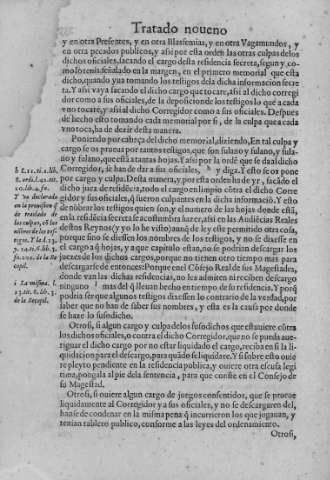 Tratado noueno
y en otra Presentes, y en otra Blasfemias, y en otra Vagamundos, y
en otra pecados publicos, y assi por esta orden las otras culpas de los
dichos oficiales, sacando el cargo desta residencia secreta, segun y co-
mo lo tenia señalado en la margen, en el primero memorial que esta
dicho, quando yua tomando los testigos de la dicha informacion secre
ta. Y assi vaya sacando el dicho cargo que tocare, assi al dicho corregi
dor como a sus oficiales, de la deposicion de los testigos lo que a cada
vno tocare, y assi al dicho Corregidor como a sus oficiales. Despues
de hecho esto tomando cada memorial por si, de la culpa que a cada
vno toca, ha de dezir desta manera.
Poniendo por cabeça del dicho memorial, diziendo, En tal culpa y
cargo se os prueua por tantos testigos, que son fulano y fulano, y fula-
no y fulano, que està a tantas hojas. Y assi por la ordē que se da al dicho
Corregidor, se han de dar a sus oficiales, h y diga. Y esto se os pone
por cargo y culpa. Desta manera, y por esta orden ha de yr, sacado el
dicho jura de residēcia, todo el cargo en limpio cōtra el dicho Corre
gidor y sus oficiales, q̄ fueren culpantes en la dicha informaciō. Y esto
de nōbrar los testigos quien son, y el numero de las hojas donde estā,
en la residēcia secreta se acostumbra hazer, assi en las Audiēcias Reales
destos Reynos (y yo lo he visto) aunq̄ de ley esta permitido otra cosa,
porque sino se diessen los nombres de los testigos, y no se dixesse en
el cargo a q̄ hojas, y a que capitulo estan, no se podrian descargar los
juezes de los dichos cargos, porque no tienen otro tiempo mas para
descargarse de entonces: Porque en el Cōsejo Real de sus Magestades,
donde van las dichas residencias, no les admiten ni reciben descargo
ninguno i mas del q̄ lleuan hecho en tiempo de su residencia. Y porq̄
podria ser que algunos testigos dixessen lo contrario de la verdad, por
saber que no han de saber sus nombres, y esta es la causa por donde
se haze lo susodicho.
Otrosi, si algun cargo y culpa de los susodichos que estuuiere cōtra
los dichos oficiales, o contra el dicho Corregidor, que no se pueda aue-
riguar el dicho cargo por no estar liquidado el cargo, reciba en si la li-
quidacion para el descargo, para quādo se liquidare. Y si sobre esto ouie
re pleyto pendiente en la residencia publica, y ouiere otra escusa legi
tima, pongala al pie de la sentencia, para que conste en el Consejo de
su Magestad.
Otrosi, si ouiere algun cargo de juegos consentidos, que se prueue
liquidamente al Corregidor y a sus oficiales, y no se descargaren del,
hase de condenar en la misma pena q̄ incurrieron los que jugauan, y
tenian tablero publico, conforme a las leyes del ordenamiento.
Otrosi,